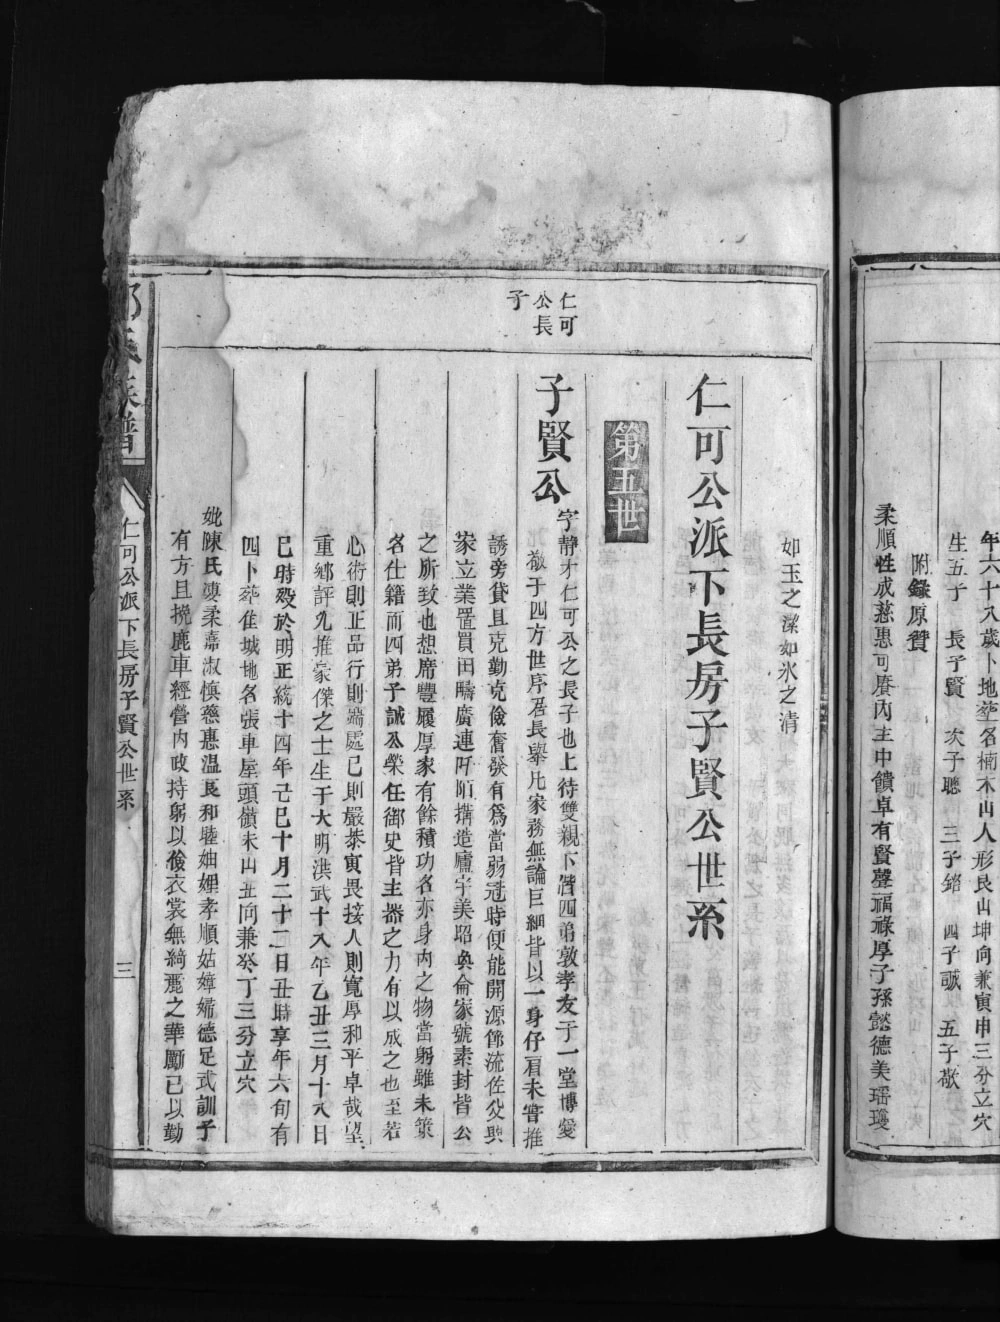 年六十八歲卜地塟名楠木山人形艮山坤向兼寅申三分立穴
生五子　長子賢　次子聰　三子鎔　四子誠　五子敬
附錄原贊
柔順性成慈惠可賡內主中饋卓有賢聲福祿厚子孫懿德美瑶瓊
如玉之潔如氷之清
仁可公派下長房子賢公世系
第五世
仁可
公長
子
子賢公
字靜才仁可公之長子也上待雙親下偕四弟敦孝友于一堂博愛
敬于四方世序居長舉凡家務無論巨細皆以一身仔肩未嘗推
諉旁貸且克勤克儉奮發有爲當弱冠時便能開源節流佐父興
家立業置買田疇廣連阡陌搆造廬宇美昭奐侖家號素封皆公
之所致也想席豐履厚家有餘積功名亦身內之物當躬雖未策
名仕籍而四弟子誠公榮任御史皆主器之力有以成之也至若
心術則正品行則端處已則嚴恭寅畏接人則寬厚和平卓哉望
重鄉評允推豪傑之士生于大明洪武十八年乙丑三月十六日
巳時殁於明正統十四年己巳十月二十二日丑時享年六旬有
四卜葬住城地名張車屋頭嶺未山丑向兼癸丁三分立穴
妣陳氏溫柔嘉淑慎慈惠溫良和睦妯娌孝順姑嫜婦德足式訓子
有方且挽鹿車經營內政持躬以儉衣裳無綺麗之華勵已以勤
氏族譜
仁可公派下長房子賢公世系
三